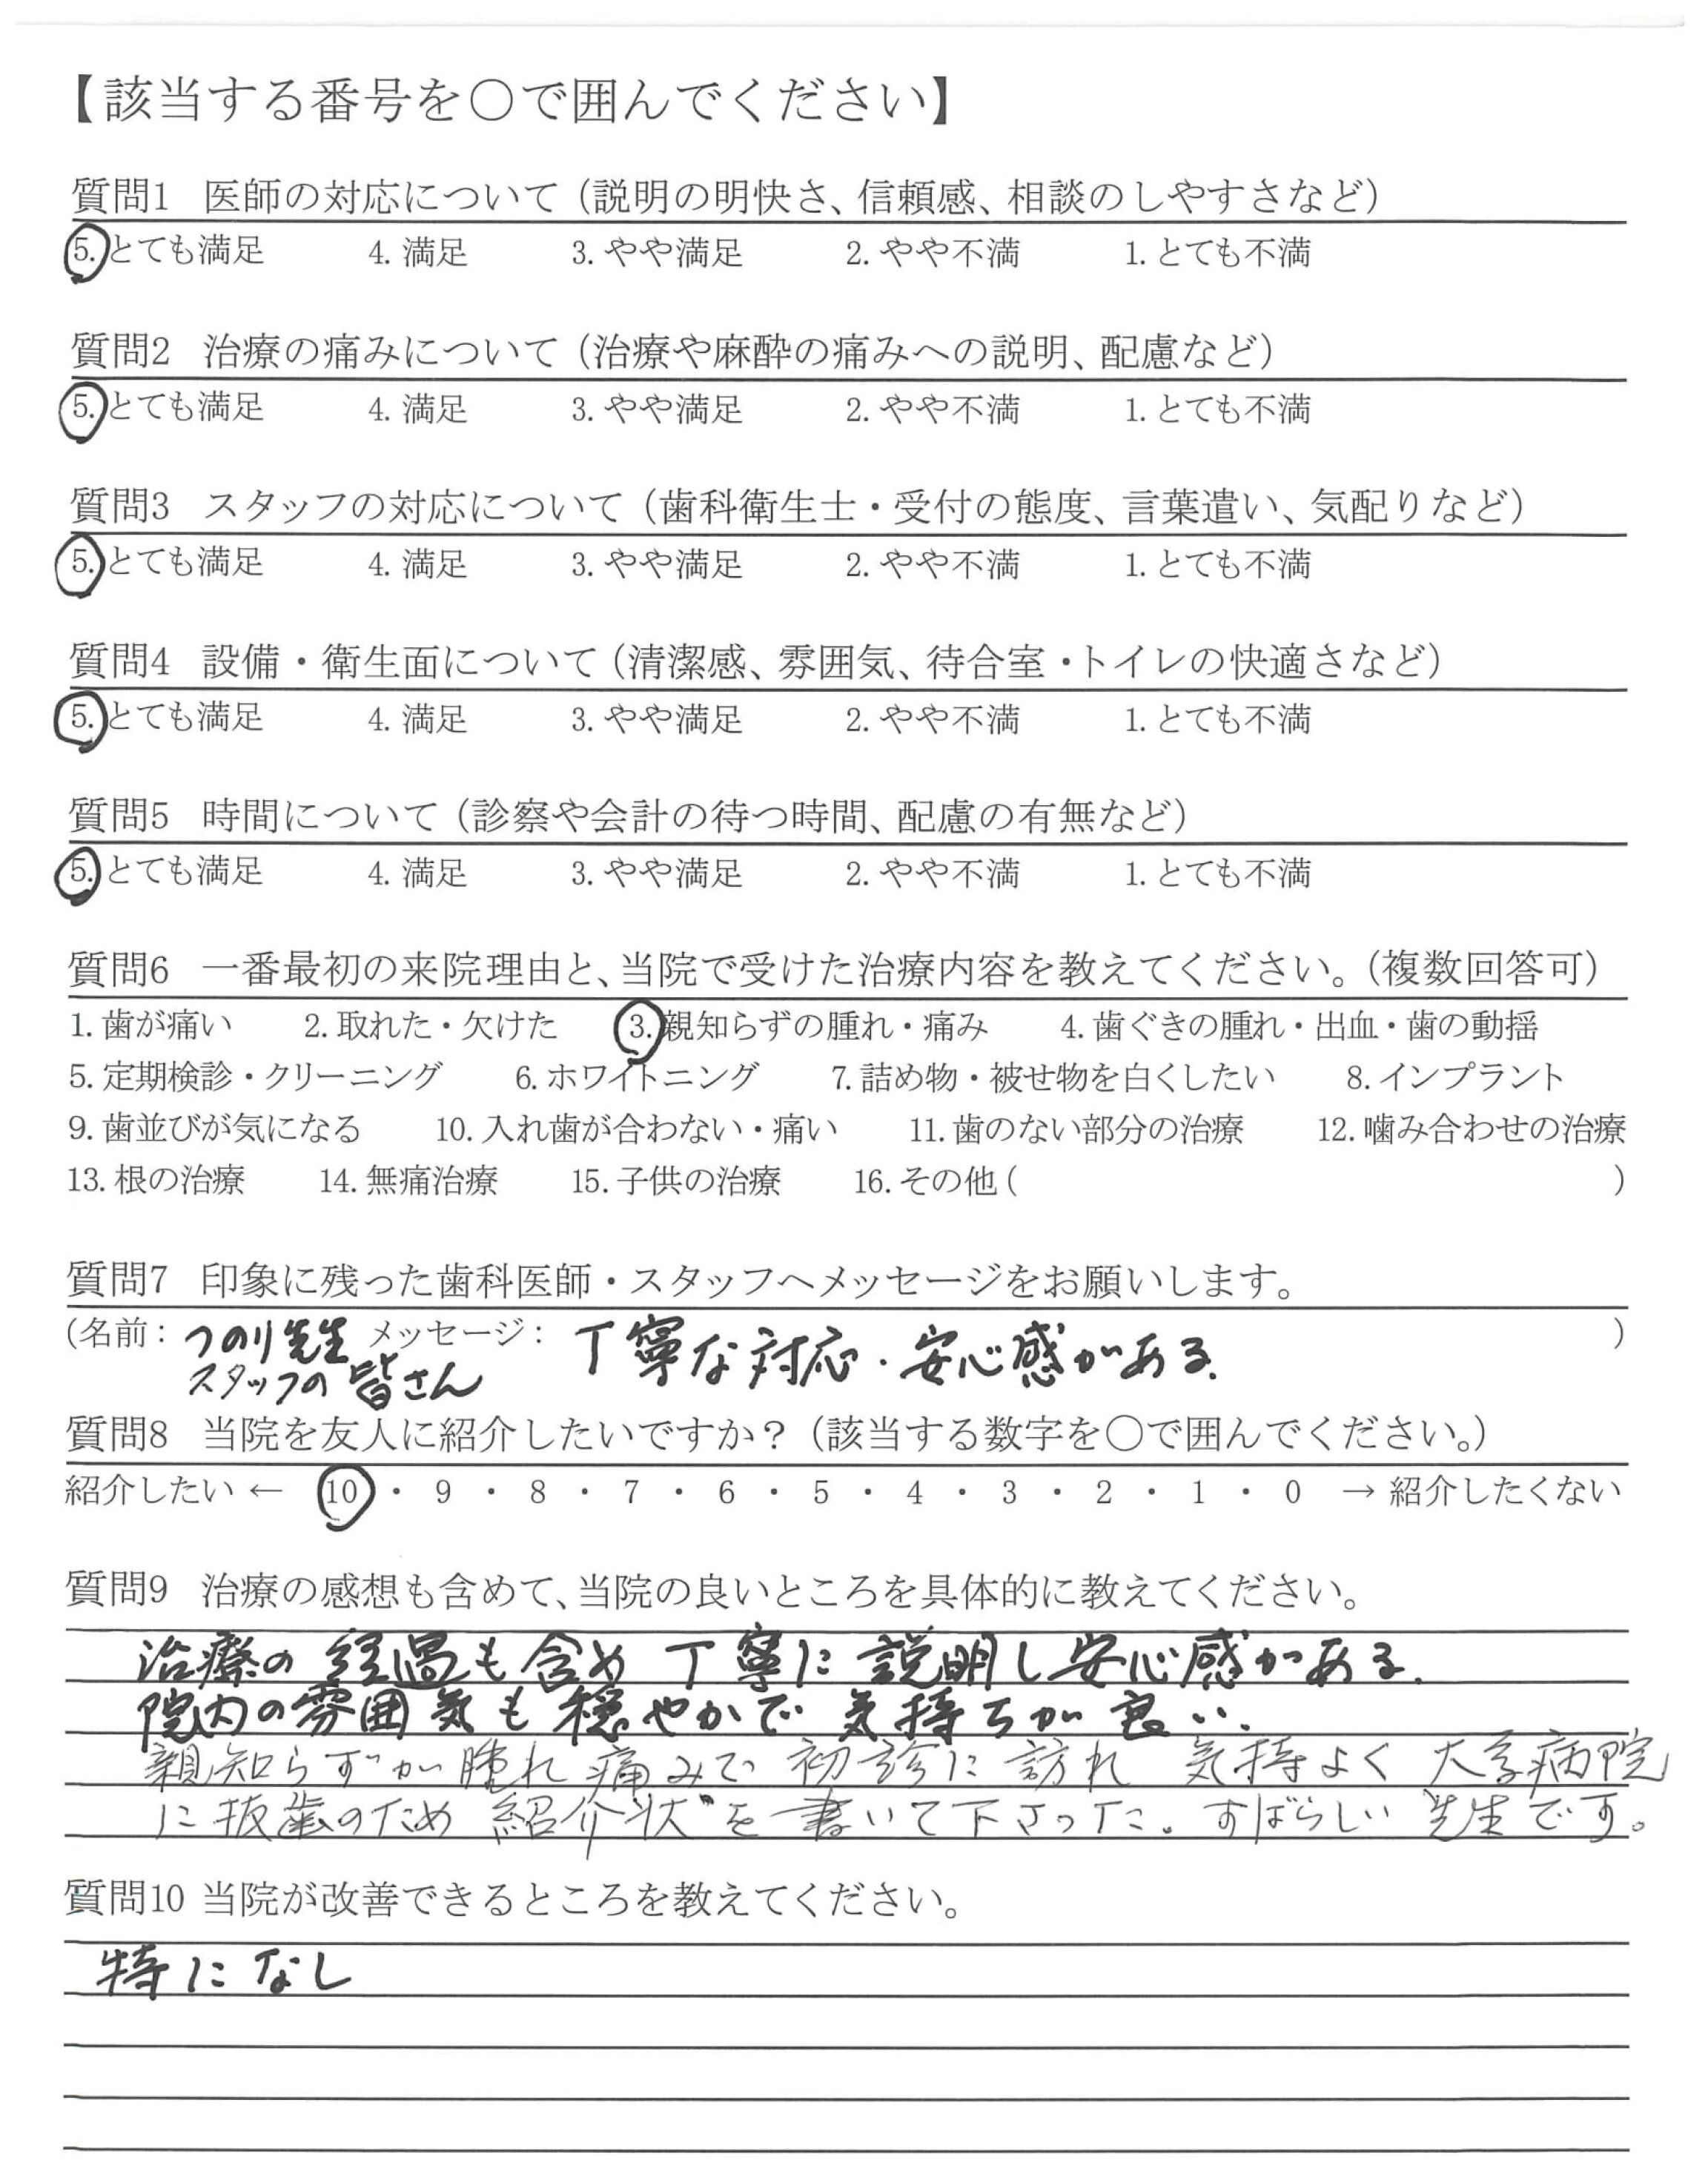 【該当する番号を〇で囲んでください】
質問1 医師の対応について（説明の明快さ、信頼感、相談のしやすさなど）
5. とても満足 4. 満足 3. やや満足 2. やや不満 1. とても不満
質問2 治療の痛みについて（治療や麻酔の痛みへの説明、配慮など）
5. とても満足 4. 満足 3. やや満足 2. やや不満 1. とても不満
質問3 スタッフの対応について（歯科衛生士・受付の態度、言葉遣い、気配りなど）
5. とても満足 4. 満足 3. やや満足 2. やや不満 1. とても不満
質問4 設備・衛生面について（清潔感、雰囲気、待合室・トイレの快適さなど）
5. とても満足 4. 満足 3. やや満足 2. やや不満 1. とても不満
質問5 時間について（診察や会計の待つ時間、配慮の有無など）
5. とても満足 4. 満足 3. やや満足 2. やや不満 1. とても不満
質問6 一番最初の来院理由と、当院で受けた治療内容を教えてください。（複数回答可）
1. 歯が痛い 2. 取れた・欠けた 3. 親知らずの腫れ・痛み 4. 歯ぐきの腫れ・出血・歯の動揺
5. 定期検診・クリーニング 6. ホワイトニング 7. 詰め物・被せ物を白くしたい 8. インプラント
9. 歯並びが気になる 10. 入れ歯が合わない・痛い 11. 歯のない部分の治療 12. 噛み合わせの治療
13. 根の治療 14. 無痛治療 15. 子供の治療 16. その他（ ）
質問7 印象に残った歯科医師・スタッフへメッセージをお願いします。
（名前：つのり先生 メッセージ：丁寧な対応・安心感がある. ）
スタッフの皆さん
質問8 当院を友人に紹介したいですか？（該当する数字を〇で囲んでください。）
紹介したい ← 10 ・ 9 ・ 8 ・ 7 ・ 6 ・ 5 ・ 4 ・ 3 ・ 2 ・ 1 ・ 0 → 紹介したくない
質問9 治療の感想も含めて、当院の良いところを具体的に教えてください。
治療の経過も含め丁寧に説明し安心感がある.
院内の雰囲気も穏やかで気持ちが良い.
親知らずが腫れ痛みで初診に訪れ 気持よく大学病院
に抜歯のため紹介状を書いて下さった。すばらしい先生です。
質問10 当院が改善できるところを教えてください。
特になし